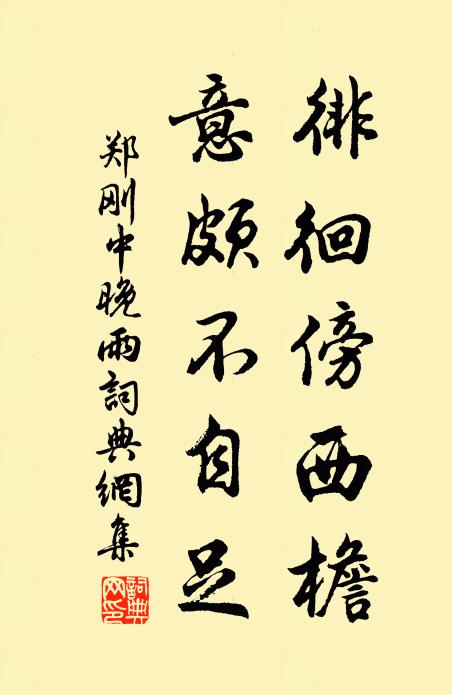 徘徊傍西檐
意頗不自足
郑刚中晚雨詞典網集
詞典网印